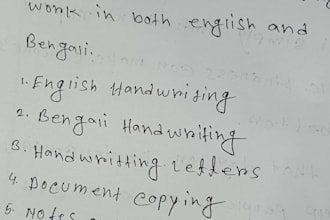 work in both english and
Bengali.
1. English Handwriting
2. Bengali Handwriting
3. Handwritting letters
4. Document copying
5. Notes